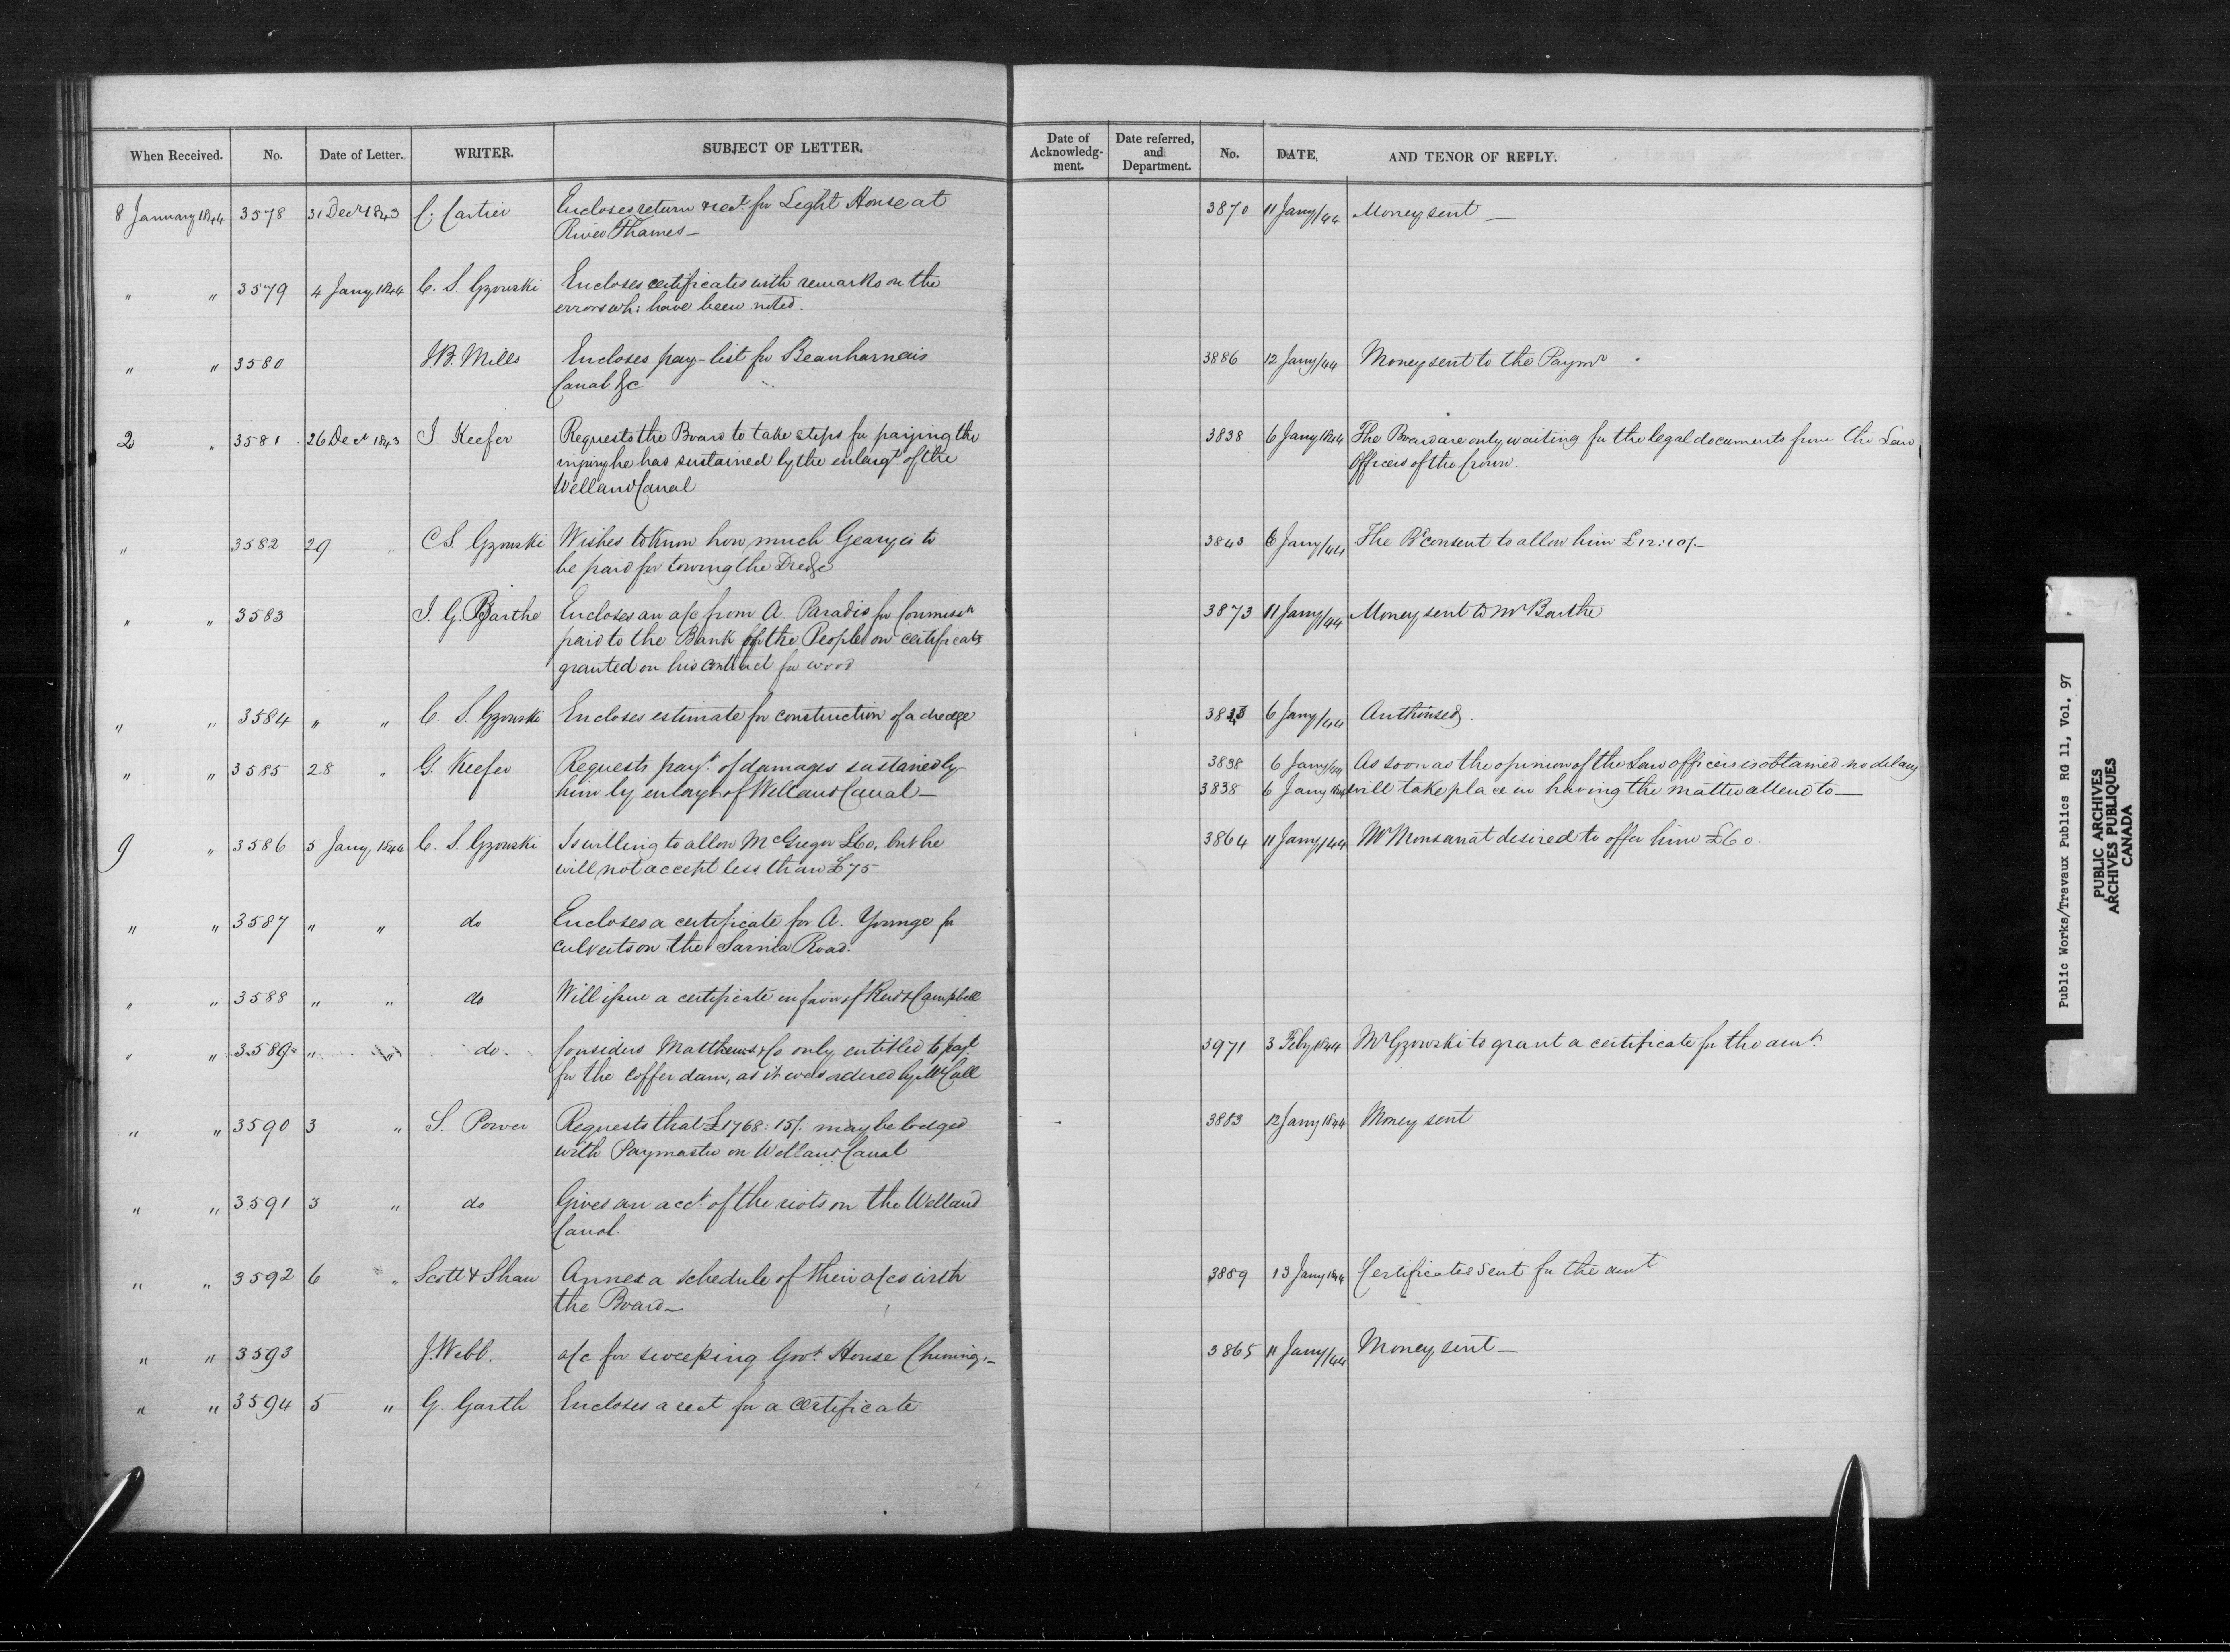 When Received. No. Date of Letter. WRITER. SUBJECT OF LETTER. Date of Acknowledg-ment. Date referred, and Department. No. DATE, AND TENOR OF REPLY.
8 January 1844 3578 31 Decr 1843 C. Cartier Encloses return & rect. for Light House at 3870 11 Jany/44 Money sent —
River Thames —
" " 3579 4 Jany 1844 C. S. Gzowski Encloses certificates with remarks on the
errors wh: have been noted.
" " 3580 J.B. Mills Encloses pay-list for Beauharnais 3886 12 Jany/44 Money sent to the Paymr
Canal &c
2 " 3581 26 Decr 1843 J. Keefer Requests the Board to take steps for paying the 3838 6 Jany 1844 The Board are only waiting for the legal documents from the Law
injury he has sustained by the enlargt. of the Officers of the Crown
Welland Canal
" 3582 29 " C S. Gzowski Wishes to know how much Geary is to 3843 6 Jany/44 The Bd consent to allow him £12:10/-
be paid for towing the Dredge
" " 3583 J. G. Barthe Encloses an a/c from A. Paradis for Commissn 3873 11 Jany/44 Money sent to Mr Barthe
paid to the Bank of the People on certificates
granted on his contract for wood
" " 3584 " " C. S. Gzowski Encloses estimate for construction of a dredge 6 Jany/44 Authorised.
" " 3585 28 " G. Keefer Requests payt. of damages sustained by 3838 6 Jany/44 As soon as the opinion of the Law officers is obtained no delay
him by enlargt of Welland Canal — 3838 6 Jany 1844 will take place in having the matter attend to —
9 " 3586 5 Jany 1844 C. S. Gzowski Is willing to allow McGregor £60, but he 3864 11 Jany/44 Mr Monsarrat desired to offer him £60.
will not accept less than £75
" " 3587 " " do Encloses a certificate for A. Younge for
culverts on the Sarnia Road.
" " 3588 " " do Will issue a certificate in favor of Reid & Campbell
" " 3589 " " do. Considers Matthews & Co only entitled to payt 3971 3 Feby 1844 Mr Gzowski to grant a certificate for the amt.
for the coffer dam, as it was ordered by Mr Call
" " 3590 3 " S. Power Requests that £1768:15/. may be lodged 3883 12 Jany 1844 Money sent
with Paymaster on Welland Canal
" " 3591 3 " do Gives an acct. of the riots on the Welland
Canal.
" " 3592 6 " Scott & Shaw Annex a schedule of their a/cs with 3889 13 Jany 1844 Certificates sent for the amt
the Board —
" " 3593 J. Webb. a/c for sweeping Govt. House Chimnies — 3865 11 Jany/44 Money sent —
" " 3594 5 " G. Garth Encloses a rect for a certificate
Public Works/Travaux Publics RG 11, Vol. 97
PUBLIC ARCHIVES
ARCHIVES PUBLIQUES
CANADA